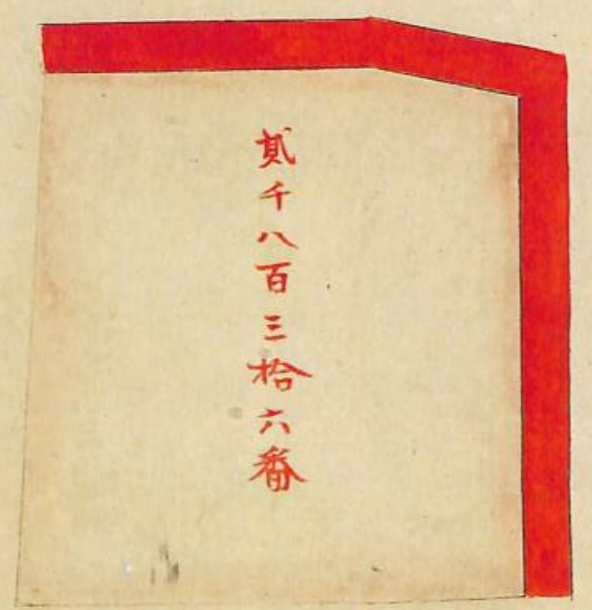 貳千八百三拾六番